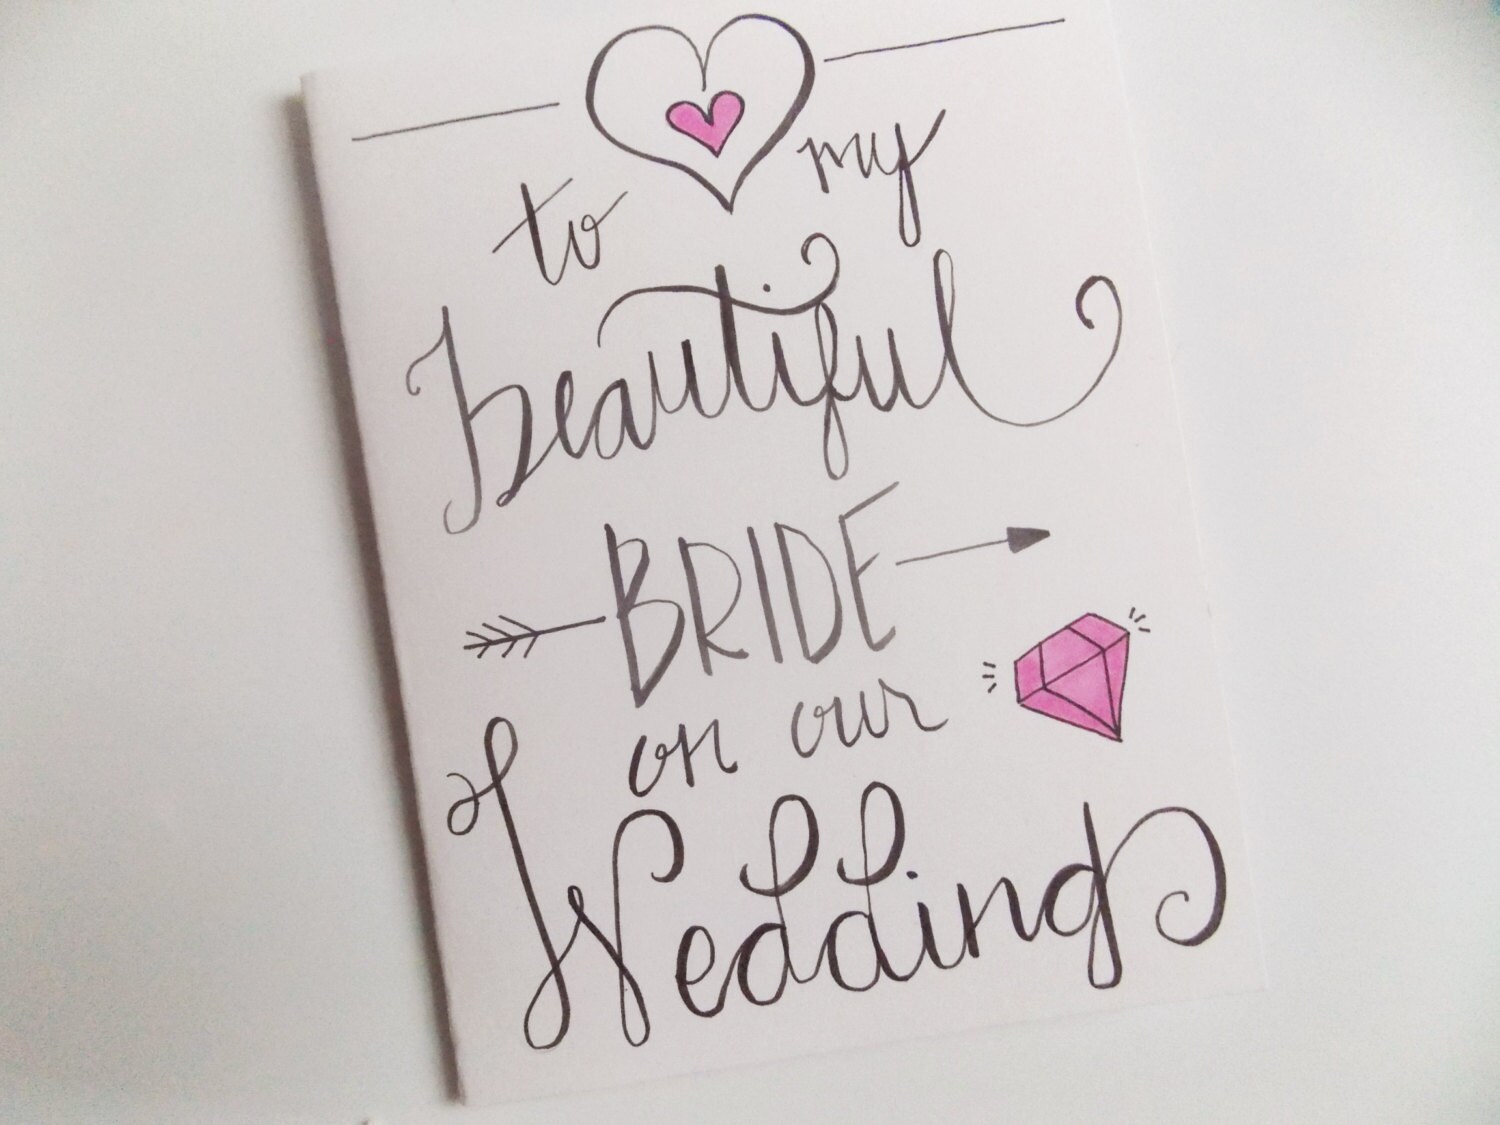 to my
beautiful
BRIDE
on our
Wedding